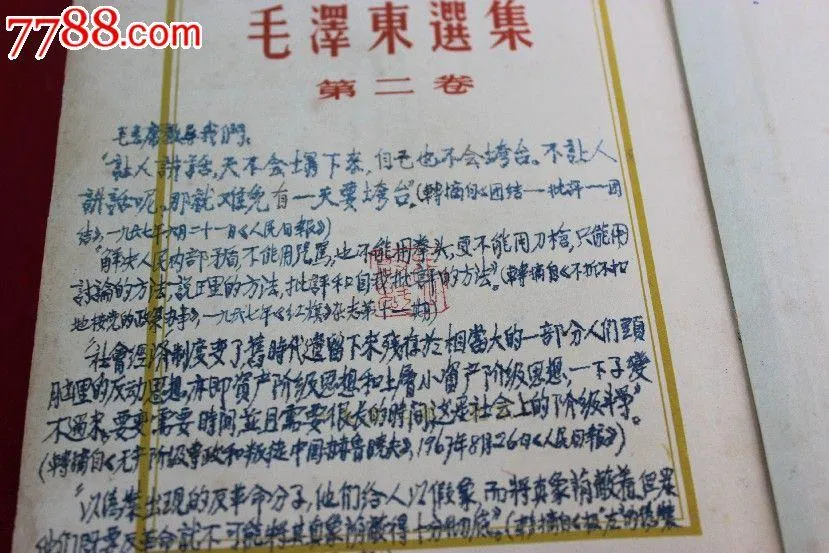 7788.com
毛澤東選集
第二卷
毛主席教导我們:
"让人讲話,天不会塌下来,自己也不会垮台。不让人
讲話呢?那就难免有一天要垮台"。(轉摘自《团结一批評一团
结》,一九六七年 月二十一日《人民日報》)
"解决人民内部矛盾,不能用咒罵,也不能用拳头,更不能用刀槍,只能用
討論的方法,說理的方法,批評和自我批評的方法"。(轉摘自《不折不扣
地按党的政策办事》,一九六七年《红旗》杂志第十一期)
"社會經济制度变了,舊時代遺留下来残存於相當大的一部分人們頭
脑里的反动思想,亦即資产阶级思想和上層小資产阶级思想,一下子變
不過来。要變需要時間,並且需要很长的時間,这是社会上的阶级斗争"。
(轉摘自《无产阶级專政和叛徒中国赫鲁曉夫》,1967年8月26日《人民日報》)
"以偽装出現的反革命分子,他們给人以假象,而將真象蔭蔽着。但是
他們既要反革命,就不可能將其真象蔭蔽得十分彻底"。(轉摘自《 的偽裝